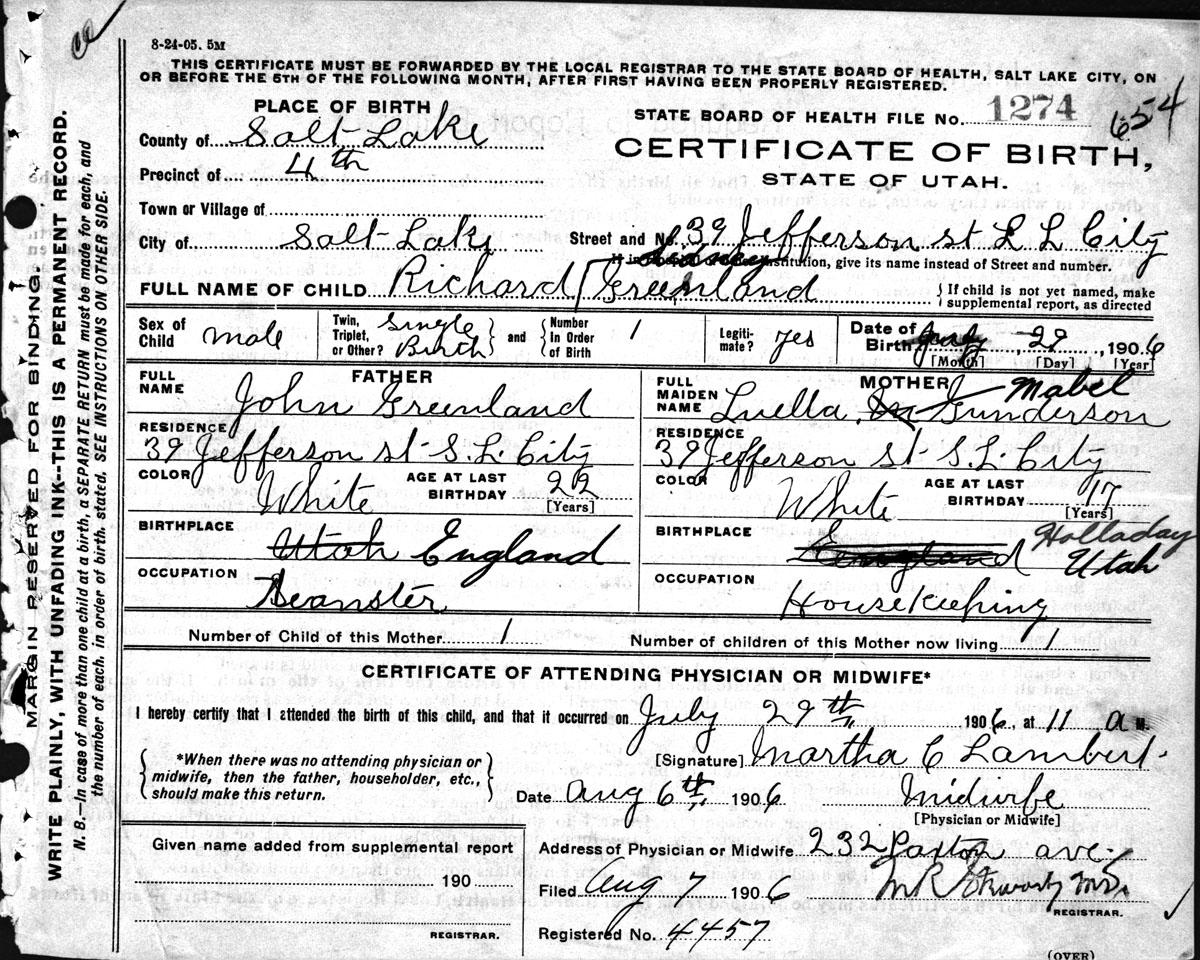 8-24-05. 5M
THIS CERTIFICATE MUST BE FORWARDED BY THE LOCAL REGISTRAR TO THE STATE BOARD OF HEALTH, SALT LAKE CITY, ON
OR BEFORE THE 5TH OF THE FOLLOWING MONTH, AFTER FIRST HAVING BEEN PROPERLY REGISTERED.
PLACE OF BIRTH
STATE BOARD OF HEALTH FILE NO. 1274 654
County of Salt Lake
CERTIFICATE OF BIRTH,
Precinct of 4th
STATE OF UTAH.
Town or Village of
City of Salt Lake Street and No. 39 Jefferson st S L City
institution, give its name instead of Street and number.
FULL NAME OF CHILD Richard Greenland
{If child is not yet named, make
supplemental report, as directed
Sex of Child male
Twin, Triplet, or Other? Single Birth and Number In Order of Birth 1
Legitimate? yes
Date of Birth July, 29, 1906
[Month] [Day] [Year]
FATHER
FULL NAME John Greenland
RESIDENCE 39 Jefferson st S.L. City
COLOR White AGE AT LAST BIRTHDAY 22 [Years]
BIRTHPLACE Utah England
OCCUPATION
MOTHER
FULL MAIDEN NAME Luella M Gunderson Mabel
RESIDENCE 39 Jefferson st S.L. City
COLOR White AGE AT LAST BIRTHDAY 17 [Years]
BIRTHPLACE England Holladay Utah
OCCUPATION Housekeeping
Number of Child of this Mother 1 Number of children of this Mother now living 1
CERTIFICATE OF ATTENDING PHYSICIAN OR MIDWIFE*
I hereby certify that I attended the birth of this child, and that it occurred on July 29th 1906, at 11 a M.
{*When there was no attending physician or
midwife, then the father, householder, etc.,
should make this return.}
[Signature] Martha C Lambert
Date Aug 6th 1906 Midwife
[Physician or Midwife]
Given name added from supplemental report
190
REGISTRAR.
Address of Physician or Midwife 232 Paxton ave
Filed Aug 7 1906 M.D.
REGISTRAR.
Registered No. 4457
(OVER)
MARGIN RESERVED FOR BINDING.
WRITE PLAINLY, WITH UNFADING INK--THIS IS A PERMANENT RECORD.
N. B.—In case of more than one child at a birth, a SEPARATE RETURN must be made for each, and
the number of each, in order of birth, stated. SEE INSTRUCTIONS ON OTHER SIDE.